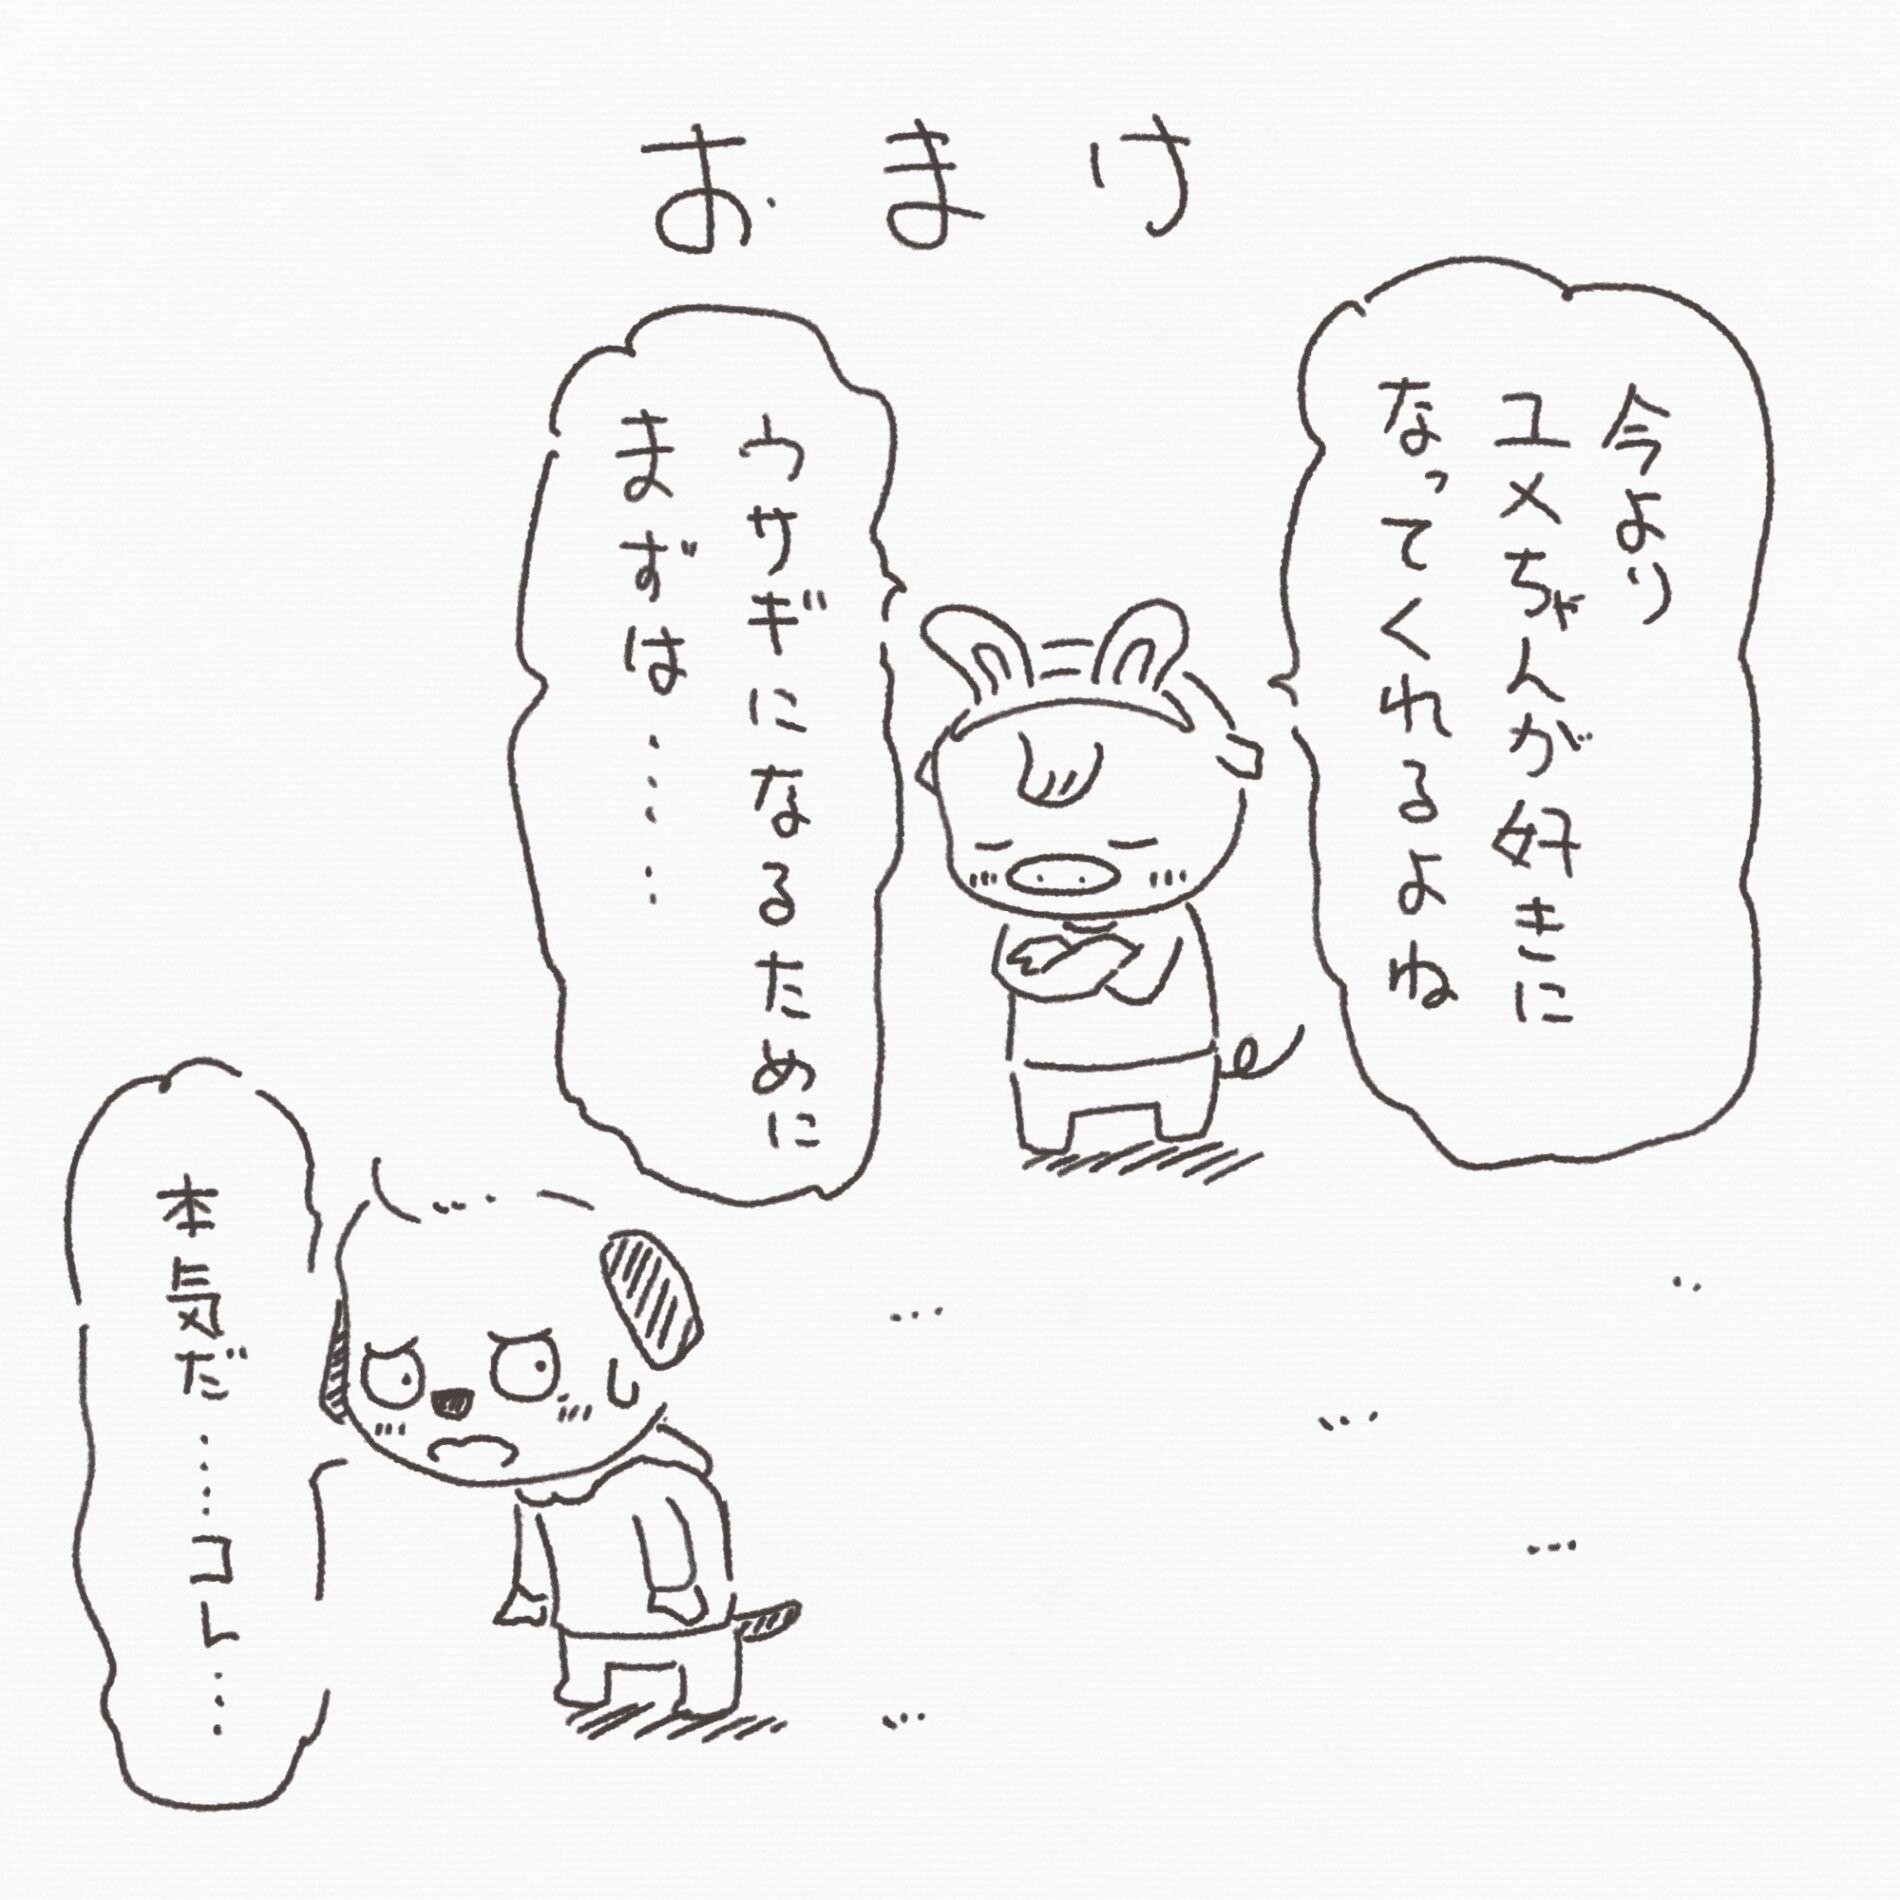 おまけ
今より
ユメちゃんが好きに
なってくれるよね
ウサギになるために
まずは……
本気だ……コレ……